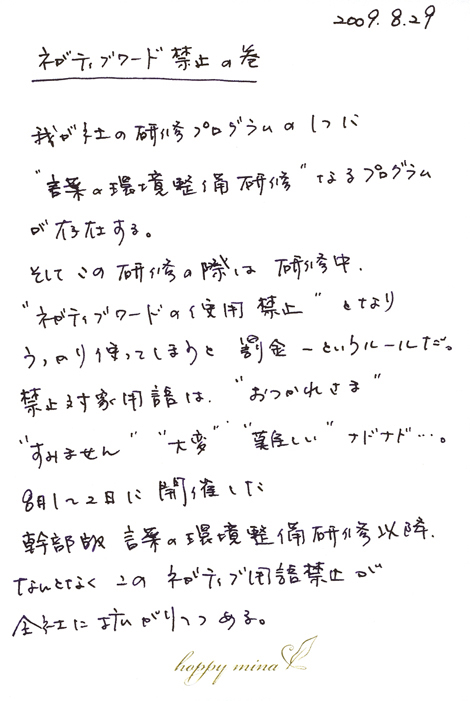 2009.8.29
ネガティブワード禁止の巻
我が社の研修プログラムの1つに
"言葉の環境整備研修"なるプログラム
が存在する。
そしてこの研修の際は 研修中、
"ネガティブワードの使用禁止"となり
うっかり使ってしまうと 罰金ーというルールだ。
禁止対象用語は、"おつかれさま"
"すみません" "大変" "難しい" ナドナド…。
8月1〜2日に開催した
幹部版 言葉の環境整備研修以降、
なんとなくこのネガティブ用語禁止が
全社に拡がりつつある。
happy mina